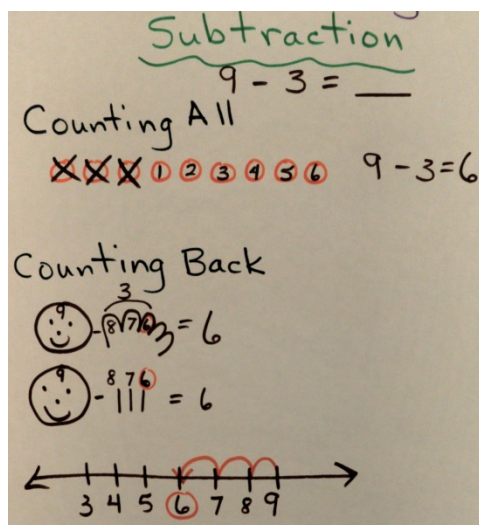 Subtraction
9 - 3 = ___
Counting All
X X X 1 2 3 4 5 6 9 - 3 = 6
Counting Back
3
9 - 8 7 6 = 6
8 7 6
9 - | | | = 6
3 4 5 6 7 8 9